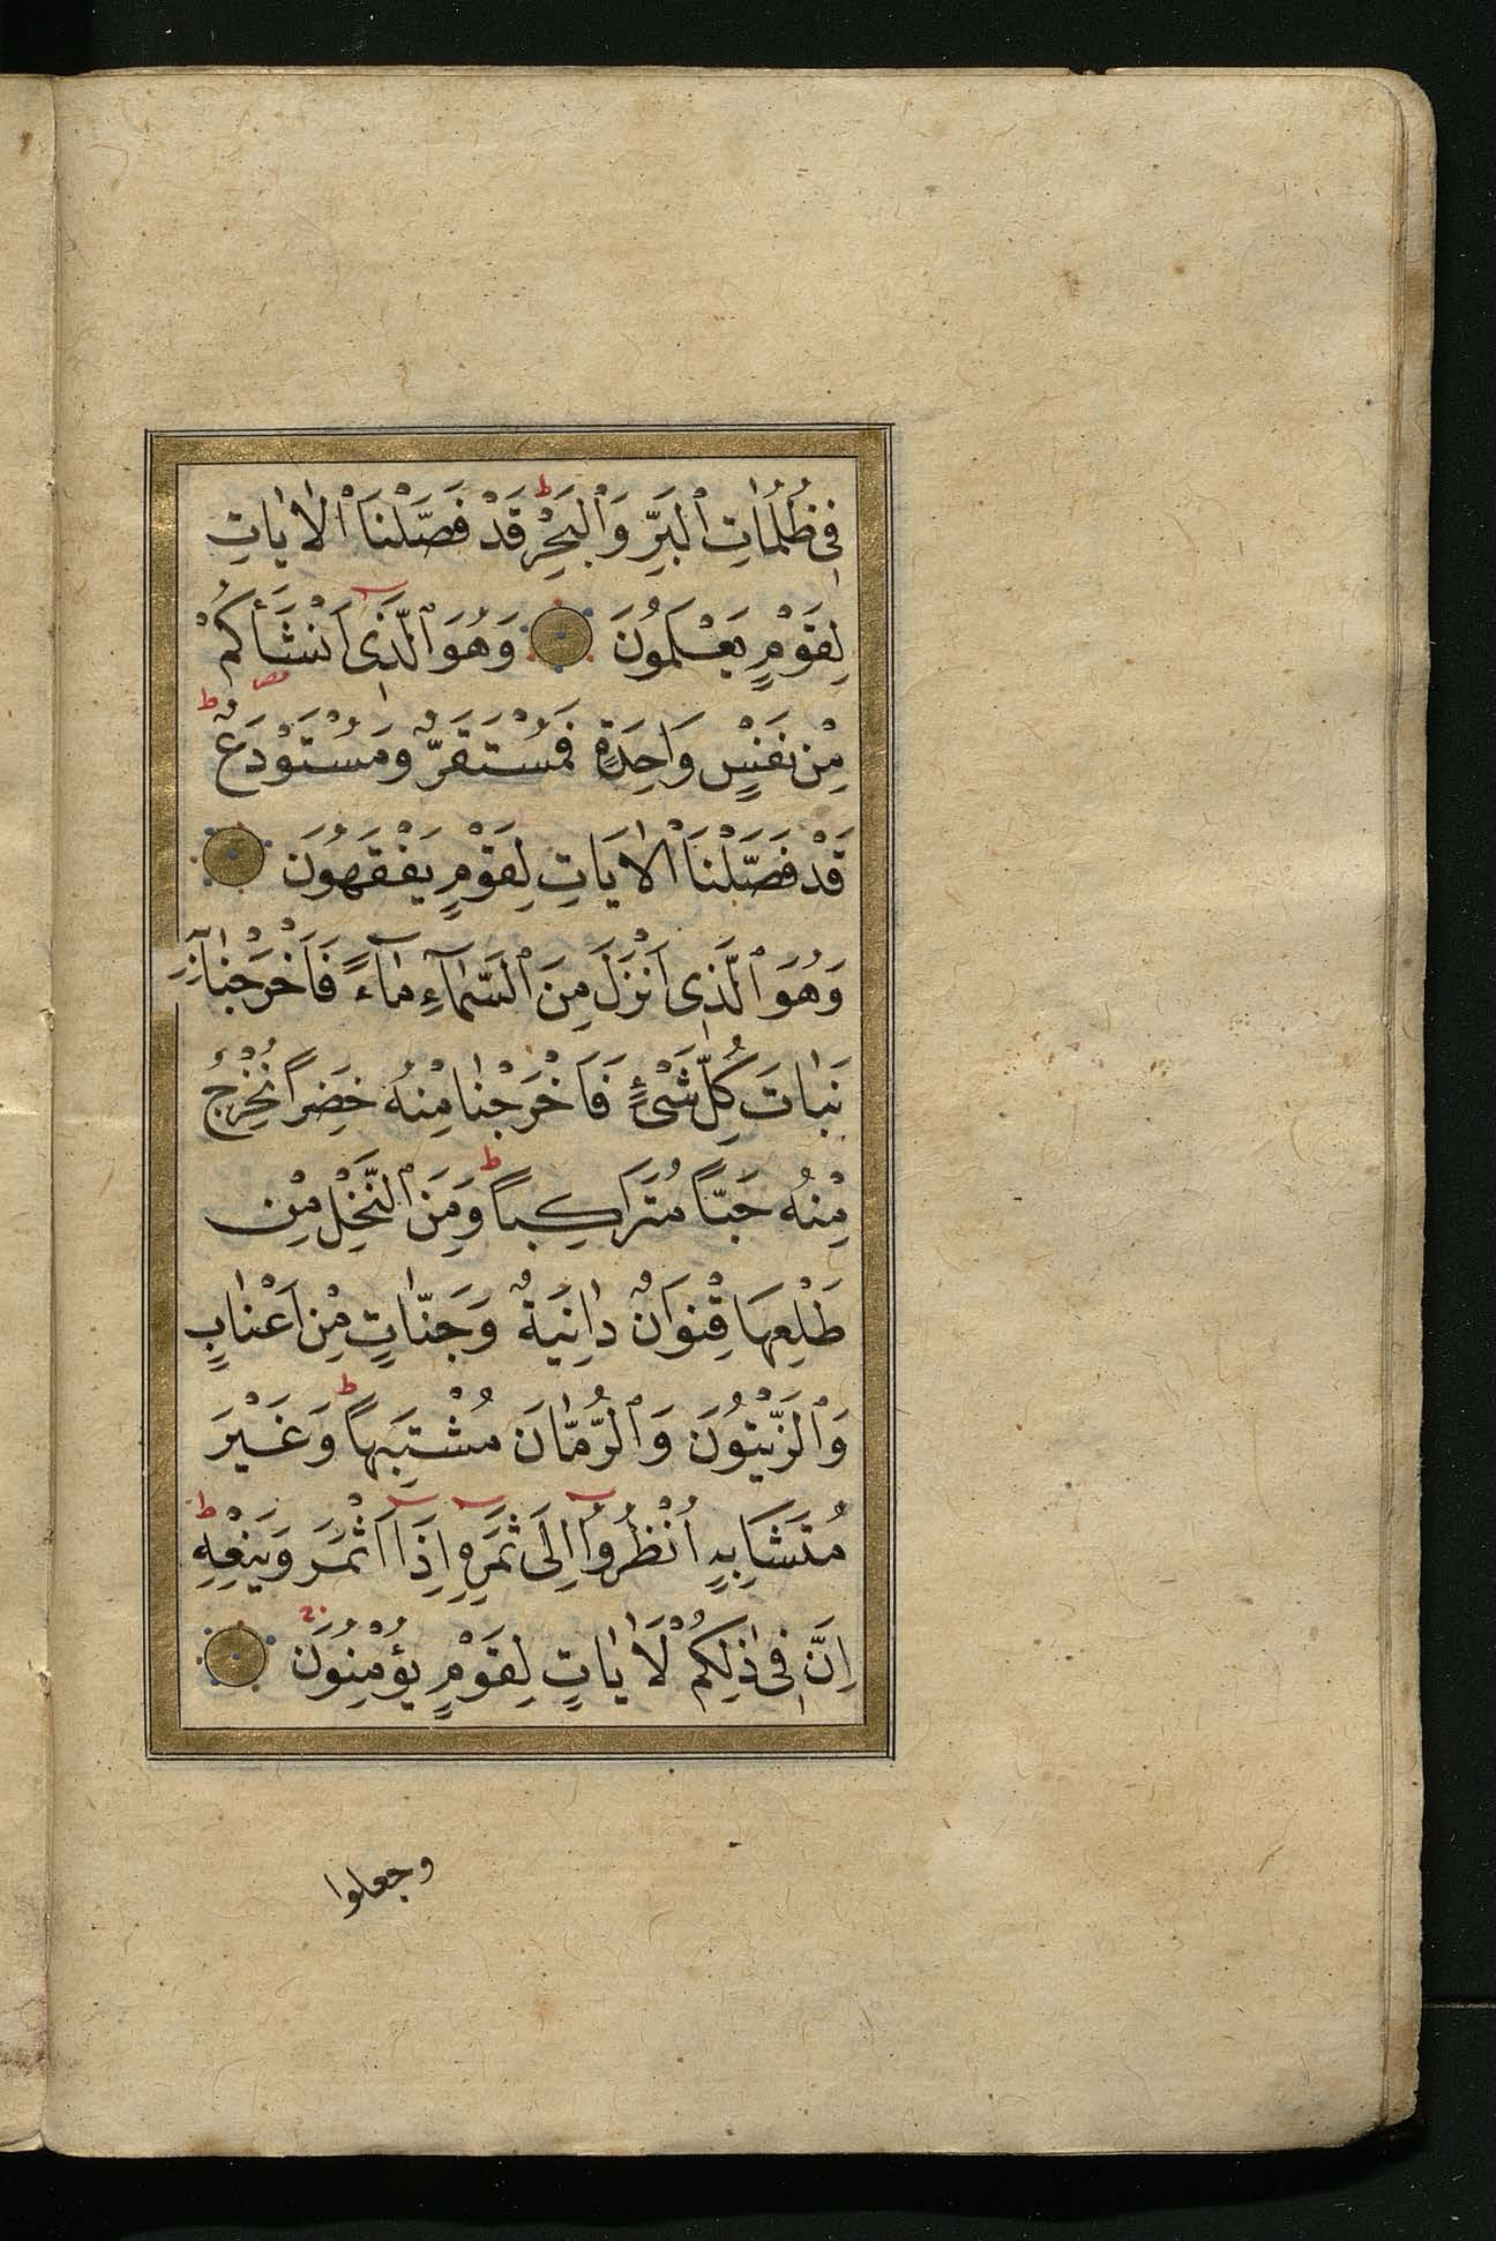 فِى ظُلُمَاتِ ٱلْبَرِّ وَٱلْبَحْرِ ط قَدْ فَصَّلْنَا ٱلْاٰيَاتِ
لِقَوْمٍ يَعْلَمُونَ وَهُوَ ٱلَّذِى اَنْشَأَكُمْ
مِنْ نَفْسٍ وَاحِدَةٍ فَمُسْتَقَرٌّ وَمُسْتَوْدَعٌ ط
قَدْ فَصَّلْنَا ٱلْاٰيَاتِ لِقَوْمٍ يَفْقَهُونَ
وَهُوَ ٱلَّذِى اَنْزَلَ مِنَ ٱلسَّمَآءِ مَآءً فَاَخْرَجْنَا
نَبَاتَ كُلِّ شَىْءٍ فَاَخْرَجْنَا مِنْهُ خَضِراً نُخْرِجُ
مِنْهُ حَبّاً مُتَرَاكِباً ط وَمِنَ ٱلنَّخْلِ مِنْ
طَلْعِهَا قِنْوَانٌ دَانِيَةٌ وَجَنَّاتٍ مِنْ اَعْنَابٍ
وَٱلزَّيْتُونَ وَٱلرُّمَّانَ مُشْتَبِهاً ط وَغَيْرَ
مُتَشَابِهٍ اُنْظُرُوٓا اِلَى ثَمَرِهِ اِذَآ اَثْمَرَ وَيَنْعِهِ ط
اِنَّ فِى ذٰلِكُمْ لَاٰيَاتٍ لِقَوْمٍ يُؤْمِنُونَ
وجعلوا